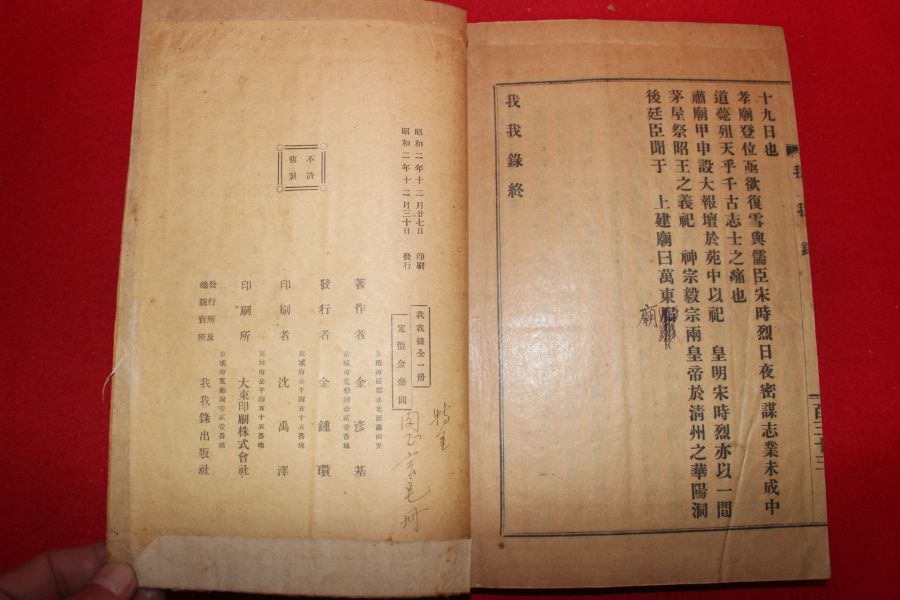 十九日也
孝廟登位亟欲復雪與儒臣宋時烈日夜密謀志業未成中
道薨殂天乎千古志士之痛也
肅廟甲申設大報壇於苑中以祀　皇明宋時烈亦以一間
茅屋祭昭王之義祀　神宗毅宗兩皇帝於清州之華陽洞
後廷臣聞于　上建廟曰萬東
廟
我我錄終
我我錄
百三十三
昭和二年十二月廿七日　印刷
昭和二年十二月三十日　發行
不許
複製
我我錄全一冊
定價金參圓
著作者　金彦基
京城府寬勳洞壹貳壹番地
發行者　金鍾瓚
京城府公平洞五十五番地
印刷者　沈禹澤
京城府公平洞五十五番地
印刷所　大東印刷株式會社
京城府寬勳洞壹貳壹番地
發行所及
總販賣所　我我錄出版社